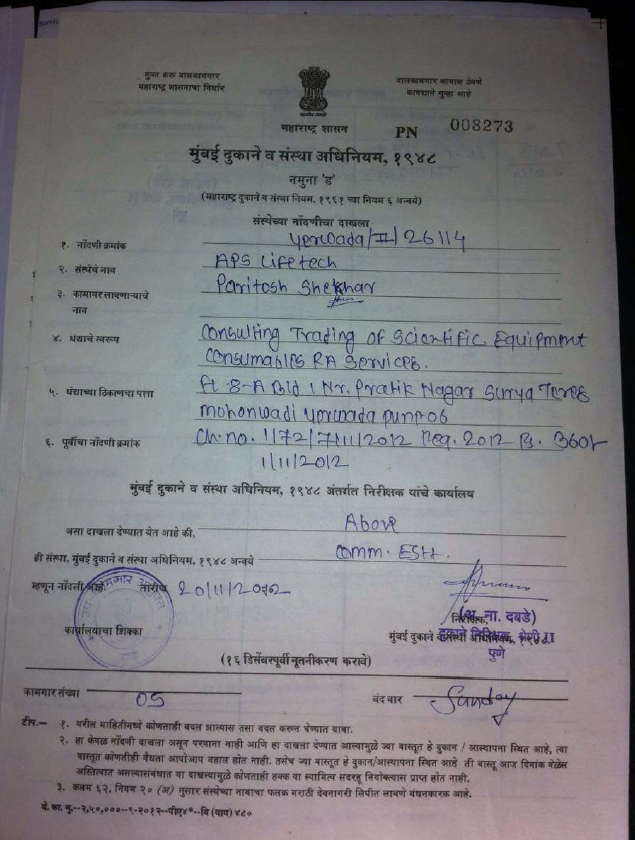 मुक्त करू बालकामगार
महाराष्ट्र शासनाचा निर्धार
बालकामगार कामास ठेवणे
कायद्याने गुन्हा आहे
महाराष्ट्र शासन
PN 008273
मुंबई दुकाने व संस्था अधिनियम, १९४८
नमुना 'ड'
(महाराष्ट्र दुकाने व संस्था नियम, १९६१ च्या नियम ६ अन्वये)
संस्थेच्या नोंदणीचा दाखला
१. नोंदणी क्रमांक yerwada/II/26114
२. संस्थेचे नाव APS Lifetech
३. कामावर लावणाऱ्याचे Paritosh Shekhar
नाव
४. धंद्याचे स्वरूप Consulting Trading of Scientific Equipment
Consumables RA Services.
५. धंद्याच्या ठिकाणचा पत्ता ft. 8-A Bld 1 Nr. Pratik Nagar Surya
mohanwadi yerwada
६. पूर्वीचा नोंदणी क्रमांक Ch. no. 1/72/7/11/2012 Reg. 2012 Rs. 360/-
1/11/2012
मुंबई दुकाने व संस्था अधिनियम, १९४८ अंतर्गत निरीक्षक यांचे कार्यालय
असा दाखला देण्यात येत आहे की, Above
ही संस्था, मुंबई दुकाने व संस्था अधिनियम, १९४८ अन्वये Comm. Estt.
म्हणून नोंदली आहे. तारीख 20/11/2012
कार्यालयाचा शिक्का
निरीक्षक,
(अ. ना. दबडे)
मुंबई दुकाने व संस्था अधिनियम, १९४८
दुकाने निरिक्षक श्रेणी II
पुणे
(१६ डिसेंबरपूर्वी नूतनीकरण करावे)
कामगार संख्या 05 बंद वार Sunday
टीप.— १. वरील माहितीमध्ये कोणताही बदल झाल्यास तसा बदल करून घेण्यात यावा.
२. हा केवळ नोंदणी दाखला असून परवाना नाही आणि हा दाखला देण्यात आल्यामुळे ज्या वास्तूत हे दुकान / आस्थापना स्थित आहे, त्या
वास्तूत कोणतीही वैधता आपोआप बहाल होत नाही. तसेच ज्या वास्तूत हे दुकान/आस्थापना स्थित आहे ती वास्तू आज दिनांक वेळेस
अस्तित्वात असल्यासंबंधात वा दाखल्यामुळे कोणताही हक्क वा स्वामित्व सदरहू नियोक्त्यास प्राप्त होत नाही.
३. कलम ६२, नियम २० (अ) नुसार संस्थेच्या नावाचा फलक मराठी देवनागरी लिपीत लावणे बंधनकारक आहे.
ये. का. मु.--२,५०,०००--९-२०१२--पीए४*--वि (वाय) ४८०